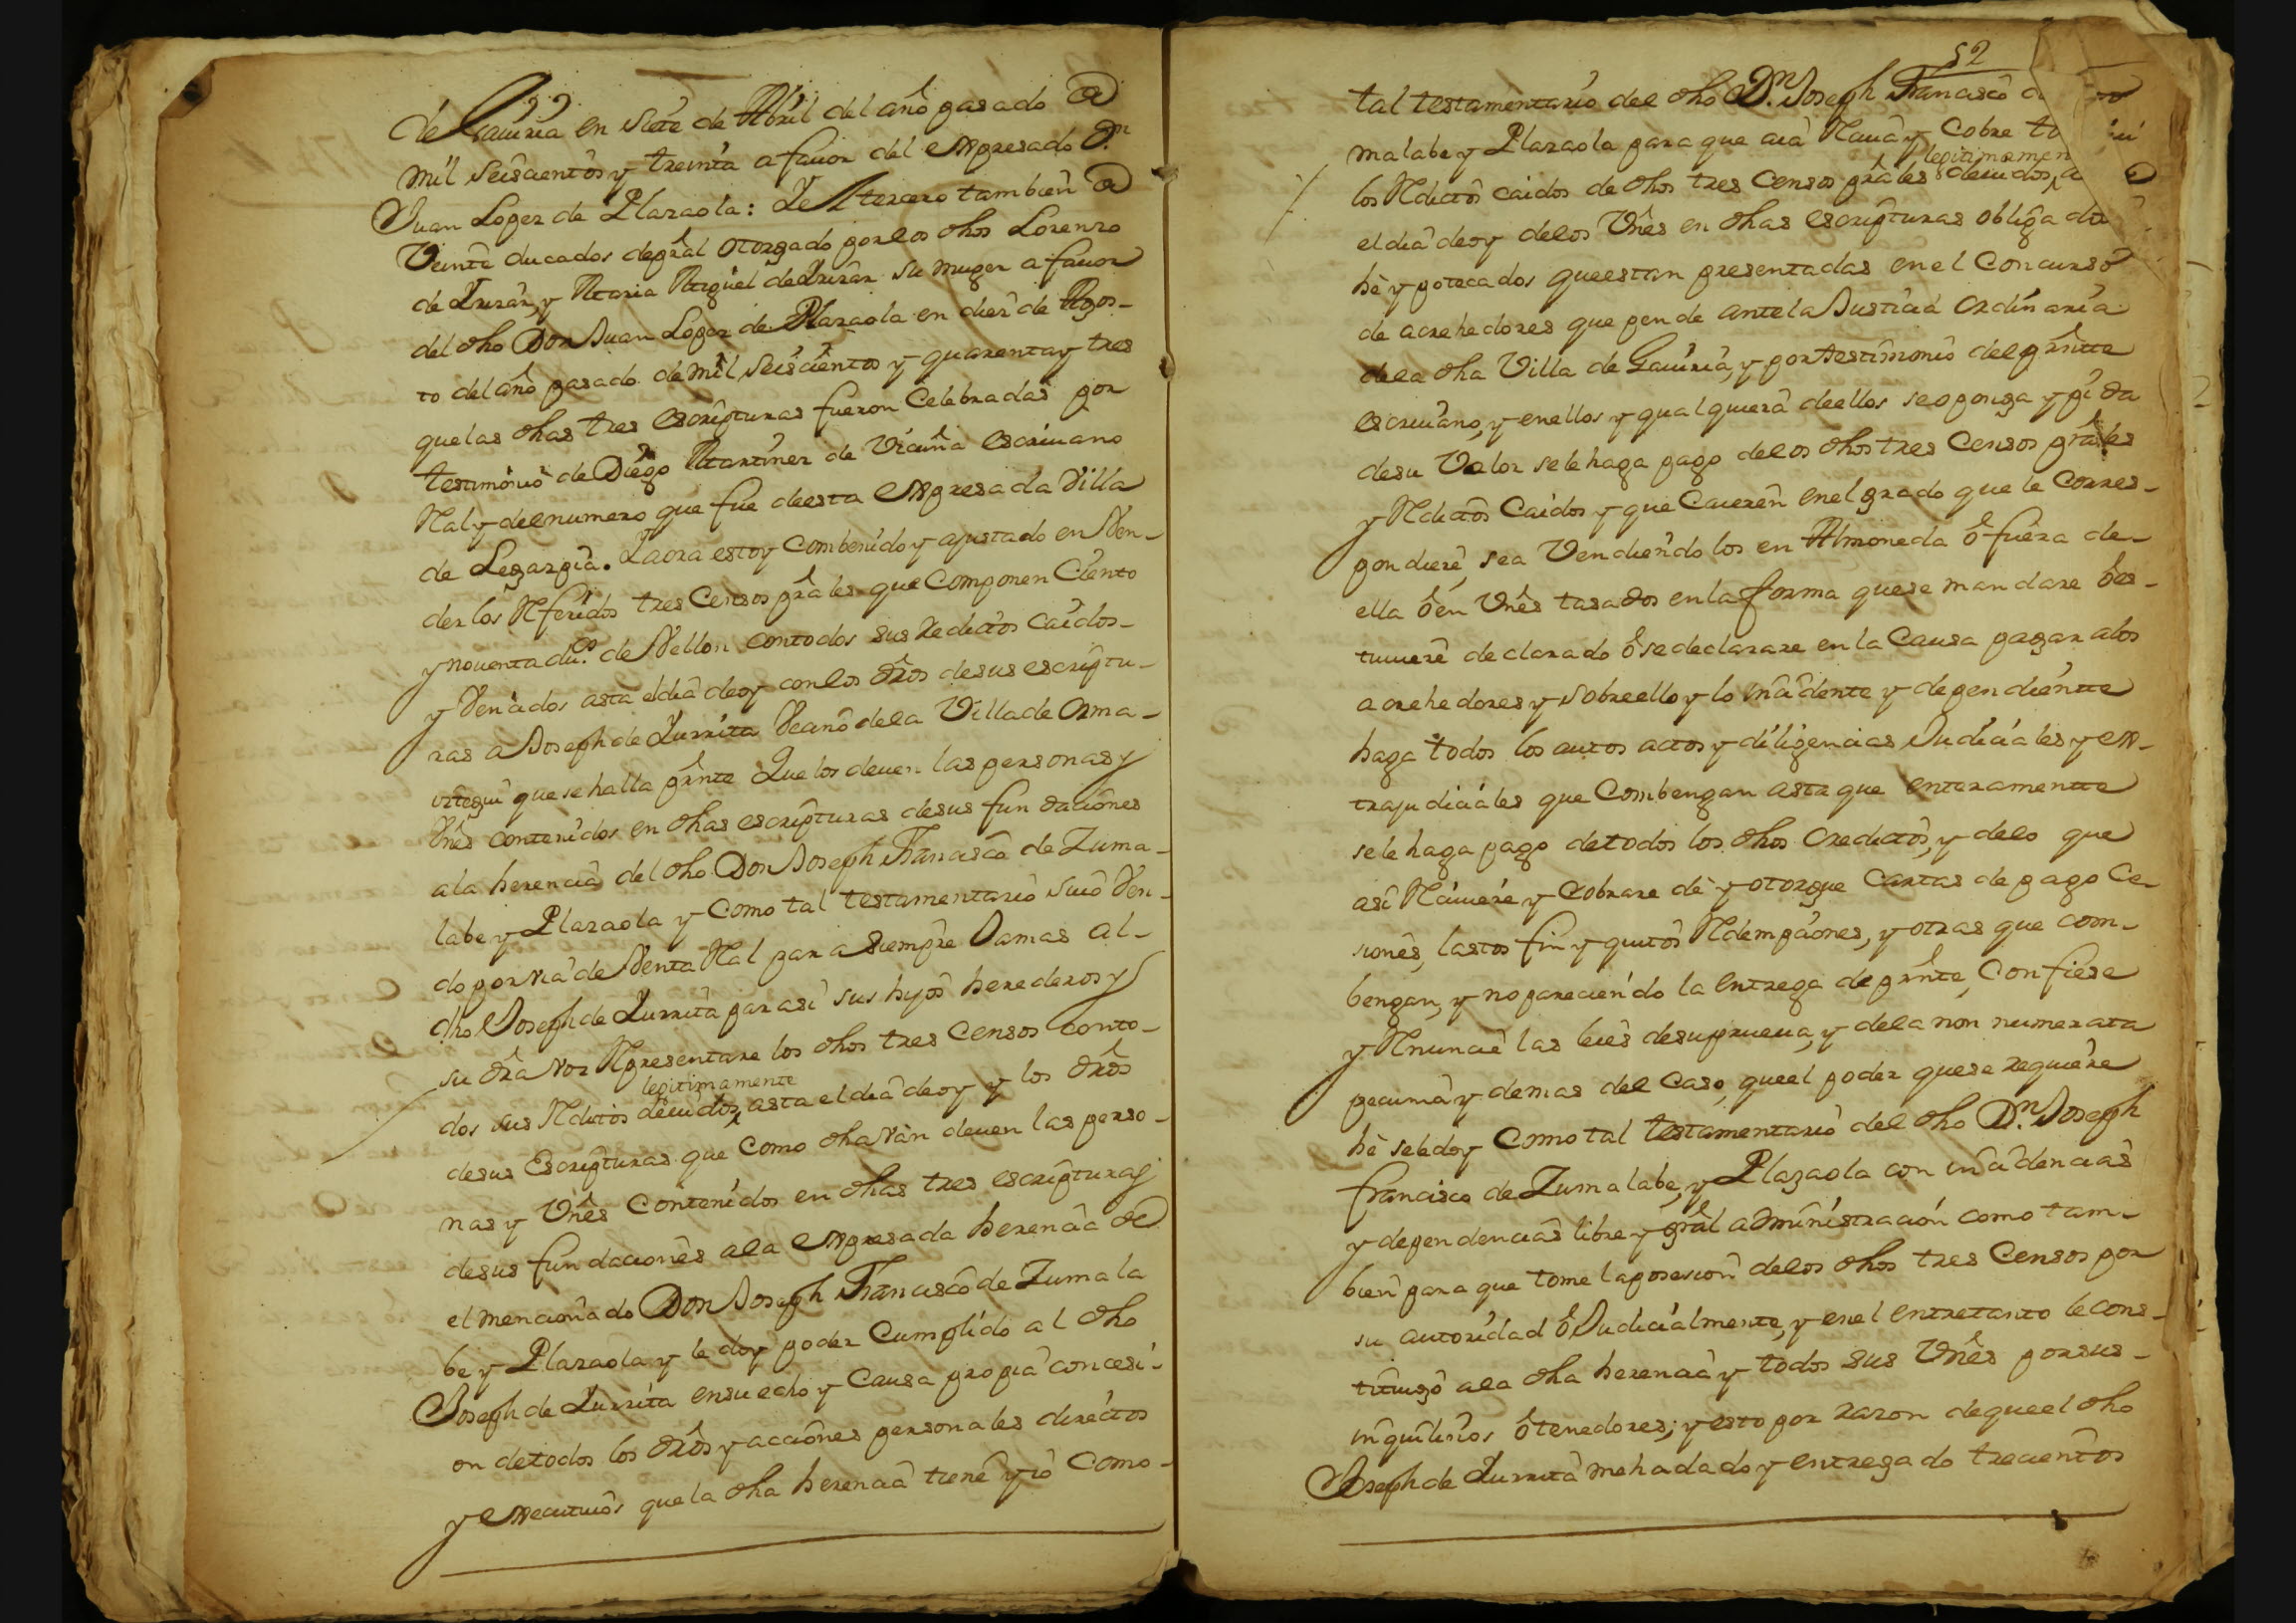 de Gauiria en siete de Abril del año pasado de
mil seiscientos y treinta a fauor del expresado Dn
Juan Lopez de Plazaola: Y el tercero tambien de
Veinte ducados de pral otorgado por los dhos Lorenzo
de Yrizar, y Maria Miguel de Yrizar su muger a fauor
del dho Don Juan Lopez de Plazaola en diez de Agos-
to del año pasado de mil seiscientos y quarenta y tres
que las dhas tres escripturas fueron Celebradas por
testimonio de Diego Martinez de Vicuña escriuano
Real y del numero que fue de esta expresada Villa
de Legazpia. Y aora estoy combenido y ajustado en Ven-
der los Referidos tres Censos prales que Componen Ciento
y nouenta dus de Vellon con todos sus Redictos caidos
y Vencidos asta el dia de oy con los dros de sus escriptu-
ras a Joseph de Zurrita Vecino de la Villa de Orma-
iztegui que se halla prnte Que los deuen las personas y
Vnes contenidos en dhas escripturas de sus fundaciones
a la herencia del dho Don Joseph Francisco de Zuma-
labe y Plazaola y como tal testamentario suio Ven-
do por via de Venta Real para siempre Jamas al
dho Joseph de Zurrita para si sus hijos herederos y
su dra voz Representare los dhos tres Censos con to-
legitimamente
dos sus Reditos deuidos asta el dia de oy y los dros
de sus Escripturas que como dha van deuen las perso-
nas y Vnes Contenidos en dhas tres escripturas
de sus fundaciones a la expresada herencia de
el mencionado Don Joseph Francisco de Zumala
be y Plazaola y le doy poder Cumplido al dho
Joseph de Zurrita en su echo y Causa propia con cesi-
on de todos los dros y acciones personales directos
y executiuos que la dha herencia tiene y io Como
52
tal testamentario del dho Dn Joseph Francisco
malabe y Plazaola para que aia Reciua y Cobre to
legitimamen
los Redictos caidos de dhos tres Censos prales deuidos a
el dia de oy de los Vnes en dhas escripturas obligados
he ypotecados que estan presentadas en el Concurso
de acrehedores que pende ante la Justicia Ordinaria
de la dha Villa de Gauiria, y por testimonio del prntte
escriuano, y en ellos y qualquiera de ellos se oponga y pida
de su Valor se le haga pago de los dhos tres Censos prales
y Redictos Caidos y que Caieren en el grado que le Corres-
pondiere, sea Vendiendo los en Almoneda o fuera de
ella o en Vnes tasados en la forma que se mandare o es-
tuuiere declarado o se declarare en la Causa pagar a los
acrehedores y sobre ello y lo incidente y dependientte
haga todos los autos actos y diligencias Judiciales y ex-
trajudiciales que Combengan asta que enteramentte
se le haga pago de todos los dhos Credictos, y de lo que
asi Reciuiere y Cobrare de y otorgue Cartas de pago Ce-
siones, lastos fin y quitos Redempciones, y otras que com-
bengan, y no pareciendo la entrega de prnte, Confiese
y Renuncie las leies de su prueua, y de la non numerata
pecunia y demas del Caso, que el poder que se requiere
he se le doy Como tal testamentario del dho Dn Joseph
francisco de Zumalabe, y Plazaola con incidencias
y dependencias libre y gral administracion como tam-
bien para que tome la posesion de los dhos tres Censos por
su autoridad o Judicialmente, y en el entretanto le cons-
tituigo a la dha herencia y todos sus Vnes por sus
inquilinos o tenedores; y esto por razon de que el dho
Joseph de Zurrita me ha dado y entregado trecientos